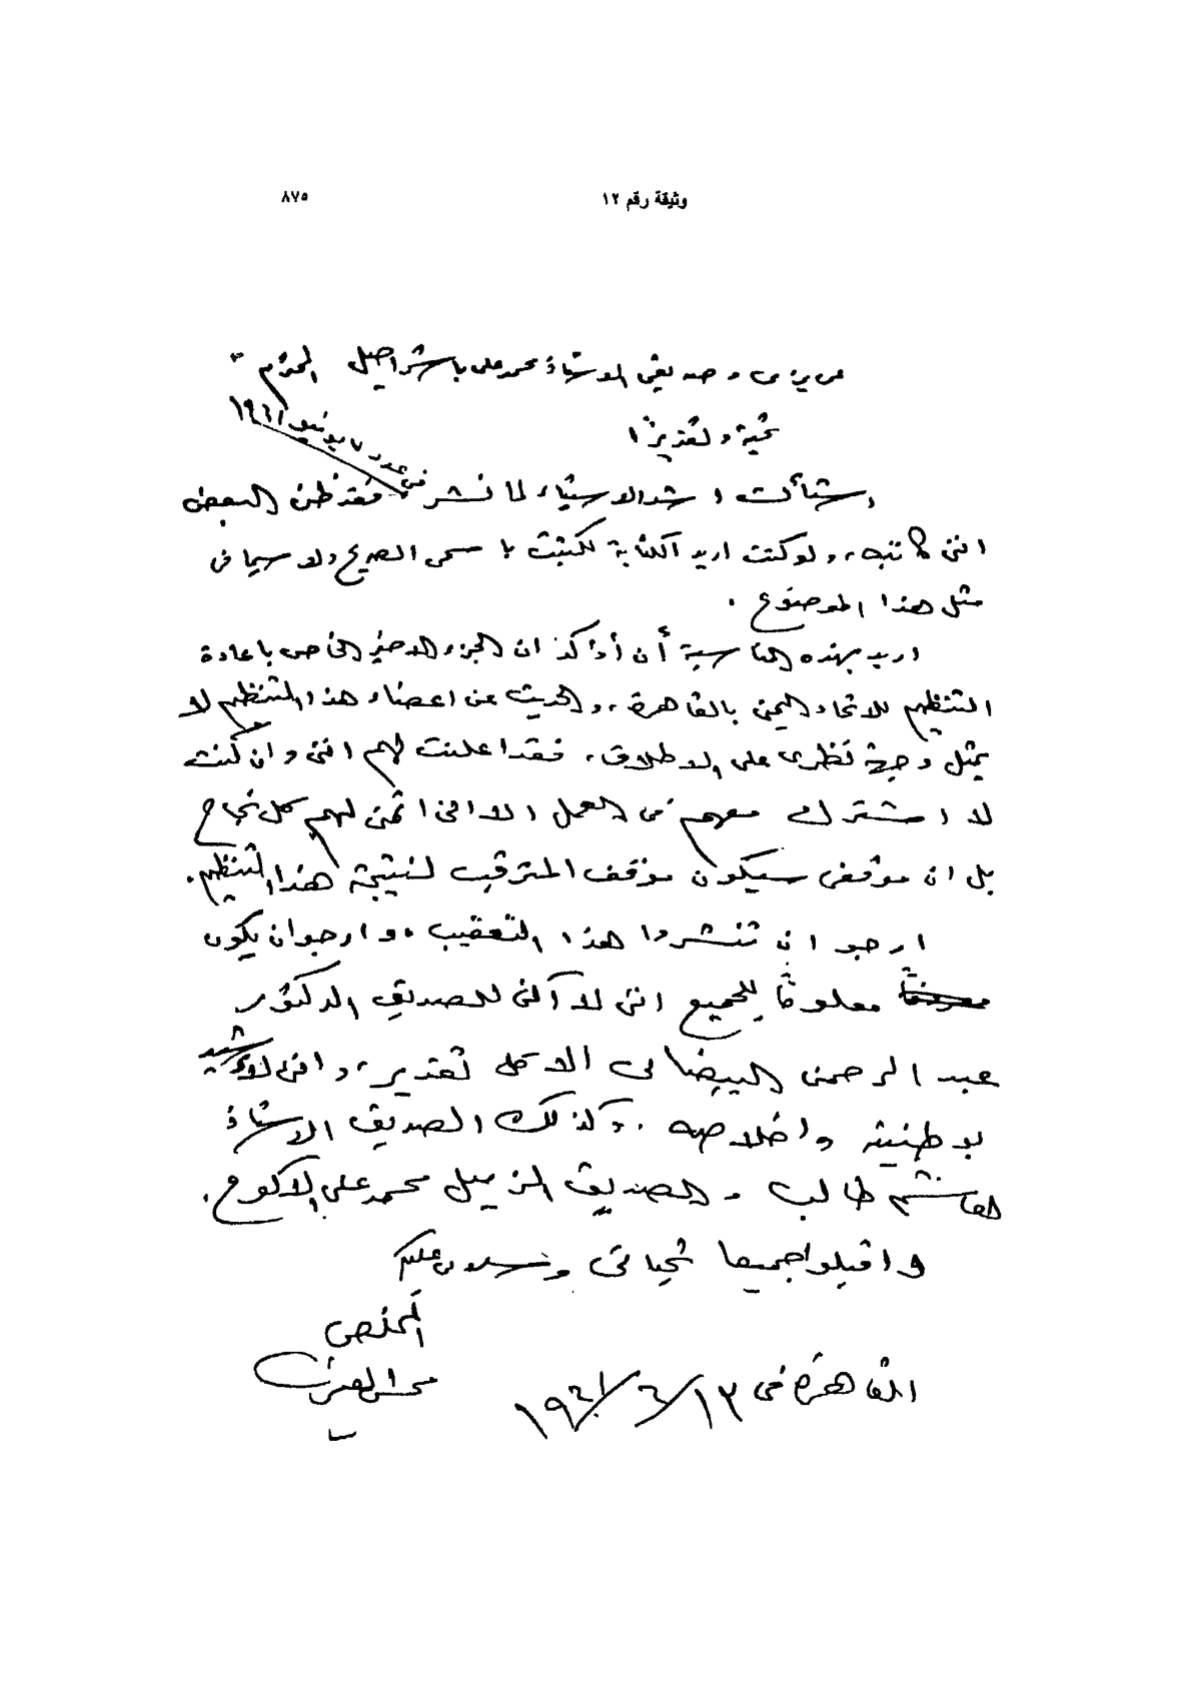 وثيقة رقم ١٢
٨٧٥
عزيزى وصديقى الاستاذ محمد على باشراحيل المحترم
تحية وتقديرا
فى عدد ٧ يونيو ١٩٦١
استأت اشد الاستياء لما نشر فقد ظن البعض
اننى كاتبه، ولو كنت اريد الكتابة لكتبت باسمى الصريح ولا سيما فى
مثل هذا الموضوع .
اريد بهذه المناسبة أن أؤكد ان الجزء الاخير الخاص باعادة
التنظيم للاتحاد اليمنى بالقاهرة، والحديث عن اعضاء هذا التنظيم لا
يمثل وجهة نظرى على الاطلاق، فقد اعلنت لهم اننى وان كنت
لا اشترك معهم فى العمل الا انى اتمنى لهم كل نجاح
بل ان موقفى سيكون موقف المترقب لنتيجة هذا التنظيم.
ارجو ان تنشروا هذا التعقيب، وارجو ان يكون
معلوما للجميع اننى لا أكن للصديق الدكتور
عبد الرحمن البيضانى الا كل تقدير، وانى لأشيد
بوطنيته واخلاصه . وكذلك الصديق الاستاذ
هاشم طالب والصديق الزميل محمد على الاكوع .
واقبلوا جميعا تحياتى وسلامى عليكم
المخلص
محسن العينى
القاهرة فى ١٣/٦/١٩٦١